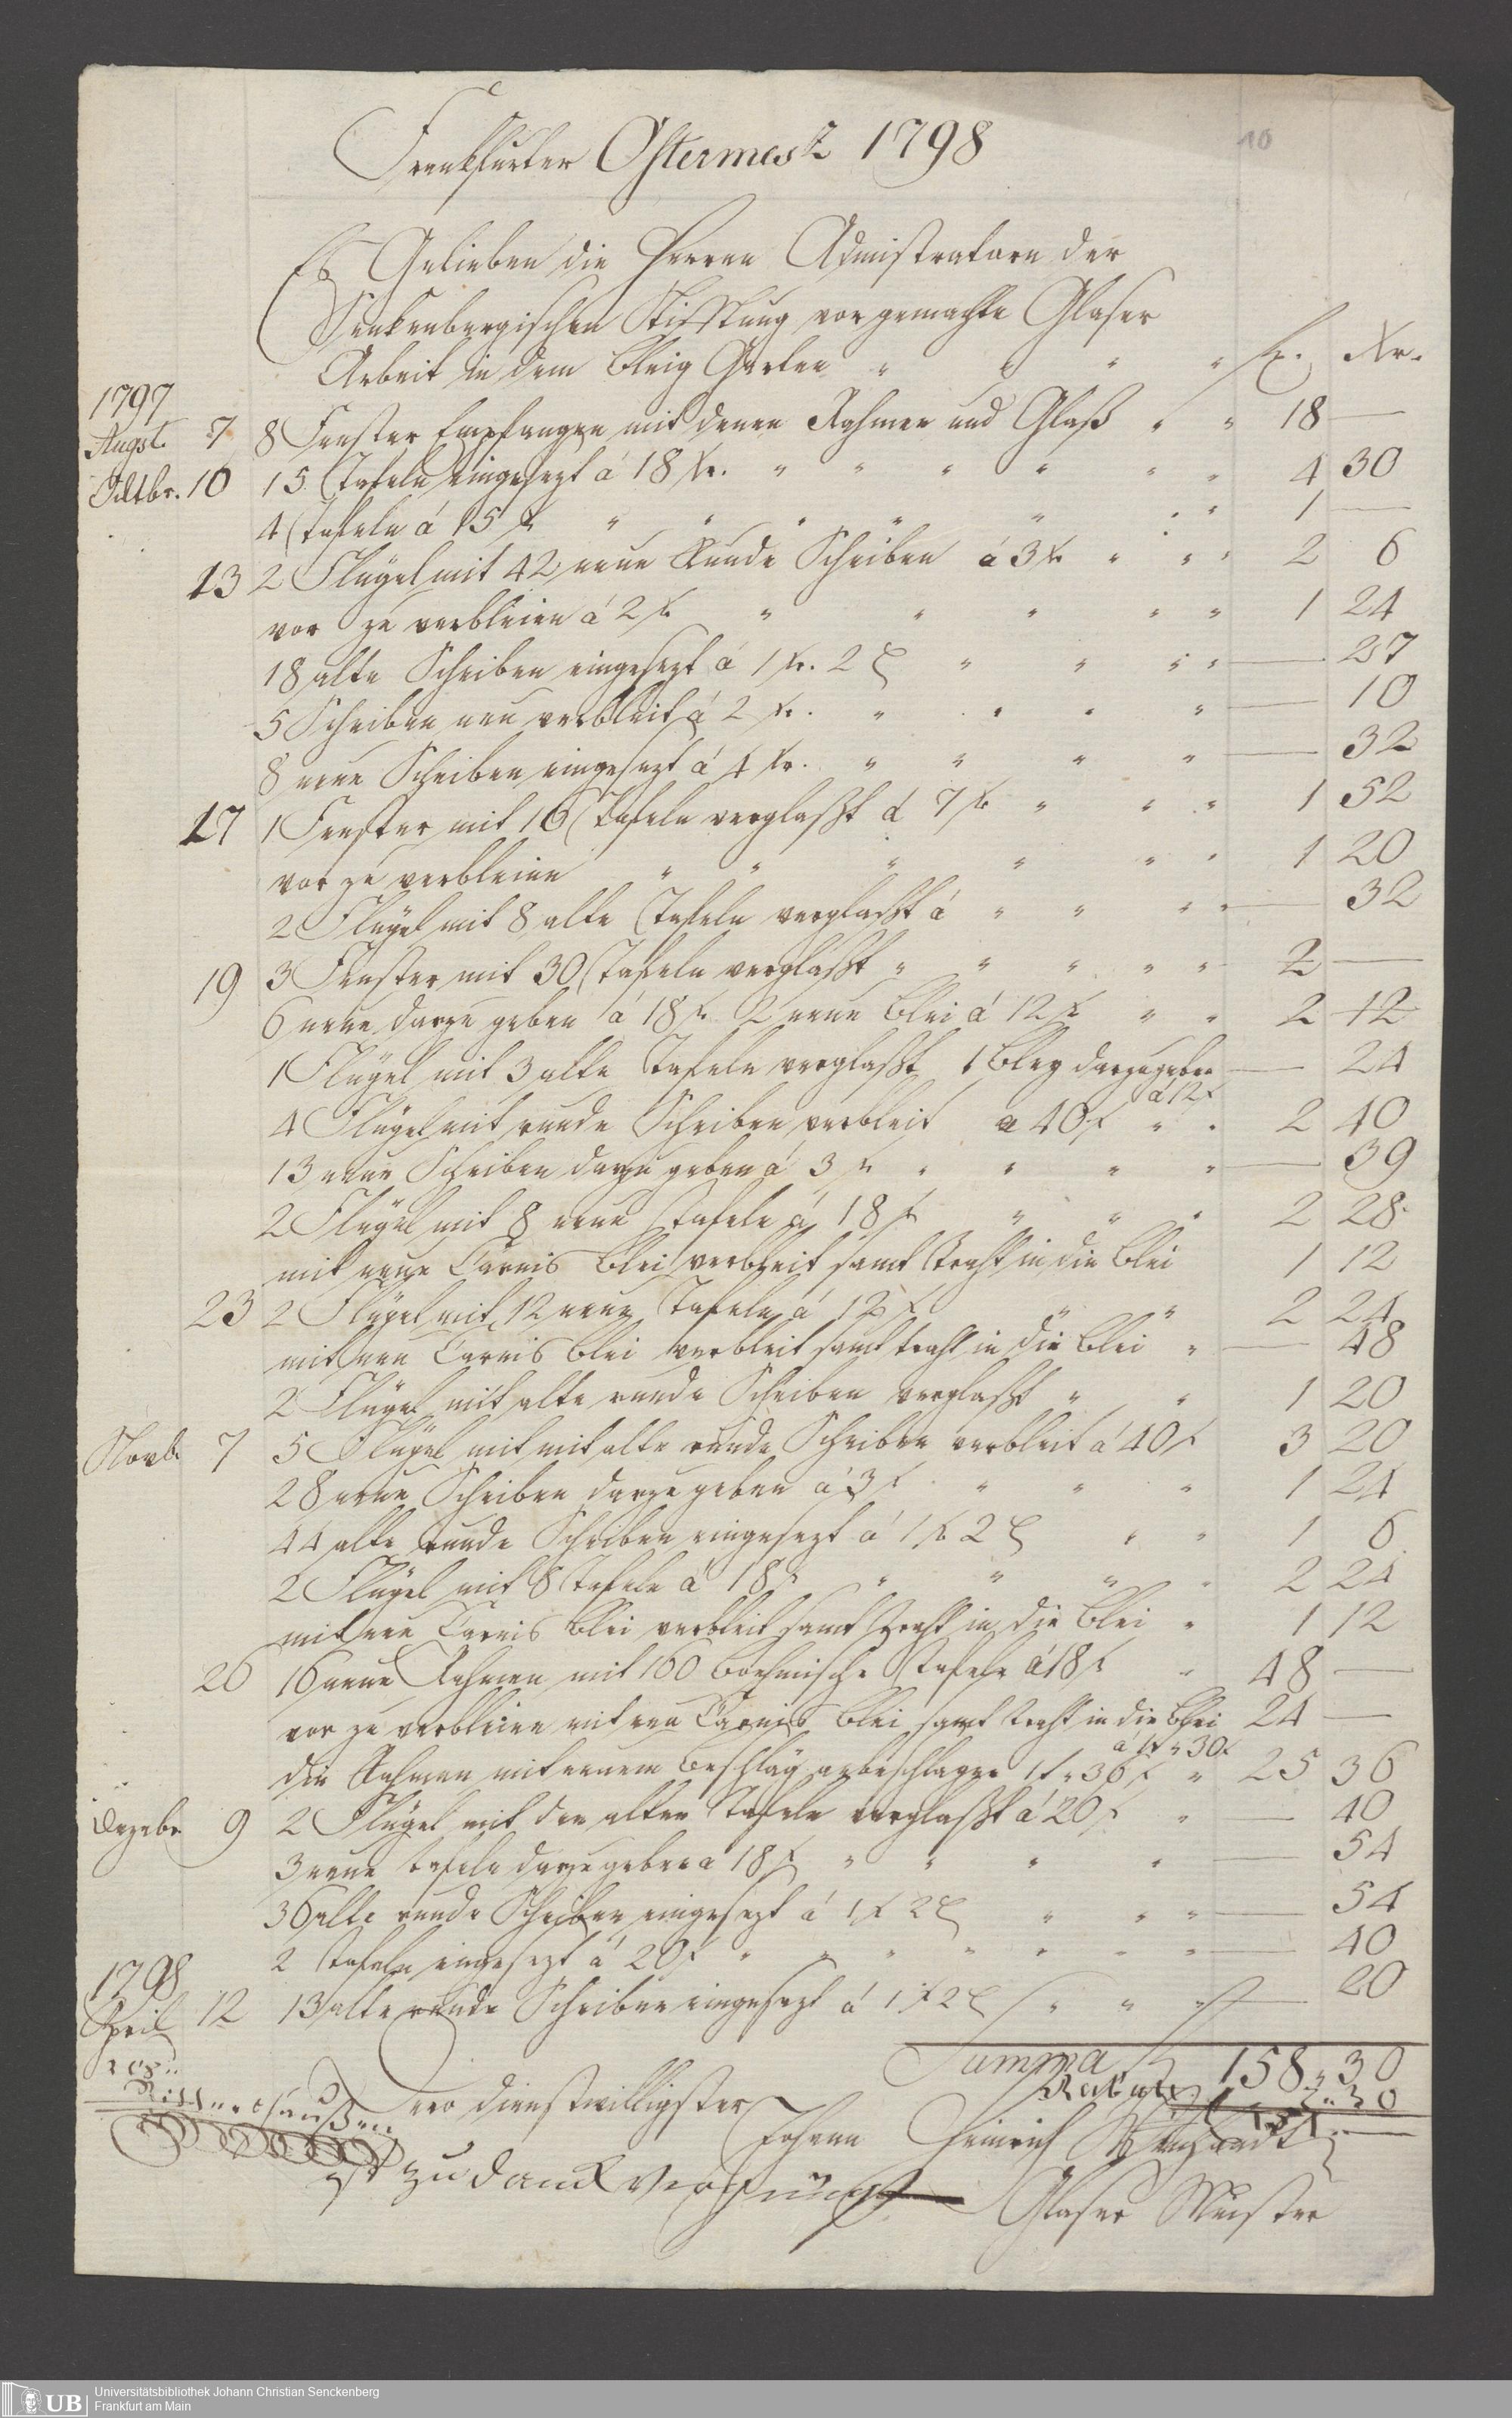 10
Frankfurter Ostermess 1798
Es Gelieben die Herren Admistratorn der
Senkenbergischen Stifftung vor gemachte Glaser
Arbeit in dem Garten " " " " f. Xr.
1797
Augst. 7 8 Fenster Empfangen mit denen Rahmen und Glaß " " 18 —
Octbr. 10 15 Tafeln eingesezt á 18 Xr. " " " " " " 4 30
4 Tafeln á 15 Xr " " " " " " " 1 —
13 2 Flügel mit 42 neue Runde Scheiben á 3 Xr " " " 2 6
vor zu verbleien á 2 Xr " " " " " 1 24
18 alte Scheiben eingesezt á 1 Xr. 2 ₰ " " " " — 27
5 Scheiben neu verbleit á 2 Xr. " " " " — 10
8 neue Scheiben eingesezt á 4 Xr. " " " " — 32
17 1 Fenster mit 16 Tafeln verglaßt á 7 Xr " " " 1 52
vor zu verbleien " " " " " " 1 20
2 Flügel mit 8 alte Tafeln verglaßt á " " " " — 32
19 3 Fenster mit 30 Tafeln verglaßt " " " " " 2 —
6 neue darzu geben á 18 Xr 2 neue Blei á 12 Xr " " 2 12
1 Flügel mit 3 alte Tafeln verglaßt 1 Bley darzugeben — 24
á 12 Xr
4 Flügel mit runde Scheiben verbleit a 40 Xr " " 2 40
13 neue Scheiben darzu geben á 3 Xr " " " " — 39
2 Flügel mit 8 neue Tafeln á 18 Xr " " " 2 28
mit neue Carnis Blei verbleit samt Draht in die Blei 1 12
23 2 Flügel mit 12 neue Tafeln á 12 Xr " " 2 24
mit neu Carnis Blei verbleit samt traht in die Blei " — 48
2 Flügel mit alte runde Scheiben verglaßt " " 1 20
Novb. 7 5 Flügel mit mit alte runde Scheiben verbleit á 40 Xr 3 20
28 neue Scheiben darzu geben á 3 Xr " " " 1 24
44 alte runde Scheiben eingesezt á 1 Xr 2 ₰ " " 1 6
2 Flügel mit 8 Tafeln á 18 Xr " " " " 2 24
mit neu Carnis Blei verbleit samt Draht in die Blei " 1 12
26 16 neue Rahmen mit 160 Boehmische Tafeln á 18 Xr " 48 —
vor zu verbleien mit neu Carnis Blei samt traht in die Blei 24 —
á 1 f " 30 Xr
die Rahmen mit neuem Beschläg anbeschlagen 1 f " 36 Xr " 25 36
Dezebr 9 2 Flügel mit den alten Tafeln verglaßt á 20 Xr " — 40
3 neue tafeln darzu geben a 18 Xr " " " " — 54
36 alte runde Scheiben eingesezt á 1 Xr 2 ₰ " " " — 54
2 tafeln eingesezt á 20 Xr " " " " " " " — 40
1798
April 12 13 alte runde Scheiben eingesezt á 1 Xr 2 ₰ " " " — 20
Summa f 158 " 30
Rabat 7 " 30
151 " —
Dero dienstwilligster
Johann Heinrich
ist zu danck vergnügt
Glaser Meister
UB
Universitätsbibliothek Johann Christian Senckenberg
Frankfurt am Main